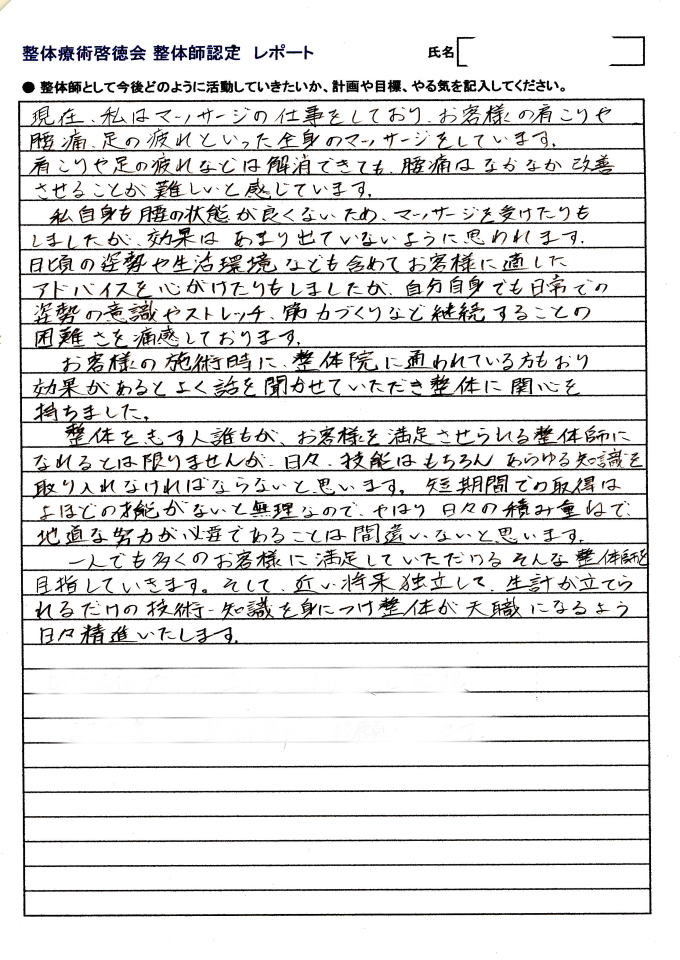 整体療術啓徳会 整体師認定 レポート 氏名
● 整体師として今後どのように活動していきたいか、計画や目標、やる気を記入してください。
現在、私はマッサージの仕事をしており、お客様の肩こりや
腰痛、足の疲れといった全身のマッサージをしています。
肩こりや足の疲れなどは解消できても、腰痛はなかなか改善
させることが難しいと感じています。
私自身も腰の状態が良くないため、マッサージを受けたりも
しましたが、効果はあまり出ていないように思われます。
日頃の姿勢や生活環境なども含めてお客様に適した
アドバイスを心がけたりもしましたが、自分自身でも日常での
姿勢の意識やストレッチ、筋力づくりなど継続することの
困難さを痛感しております。
お客様の施術時に、整体院に通われている方もおり
効果があるとよく話を聞かせていただき整体に関心を
持ちました。
整体をもす人誰もが、お客様を満足させられる整体師に
なれるとは限りませんが、日々、技能はもちろんあらゆる知識を
取り入れなければならないと思います。短期間での取得は
よほどの才能がないと無理なので、やはり日々の積み重ねで、
地道な努力が必要であることは間違いないと思います。
一人でも多くのお客様に満足していただけるそんな整体師を
目指していきます。そして、近い将来独立して、生計が立てら
れるだけの技術・知識を身につけ整体が天職になるよう
日々精進いたします。